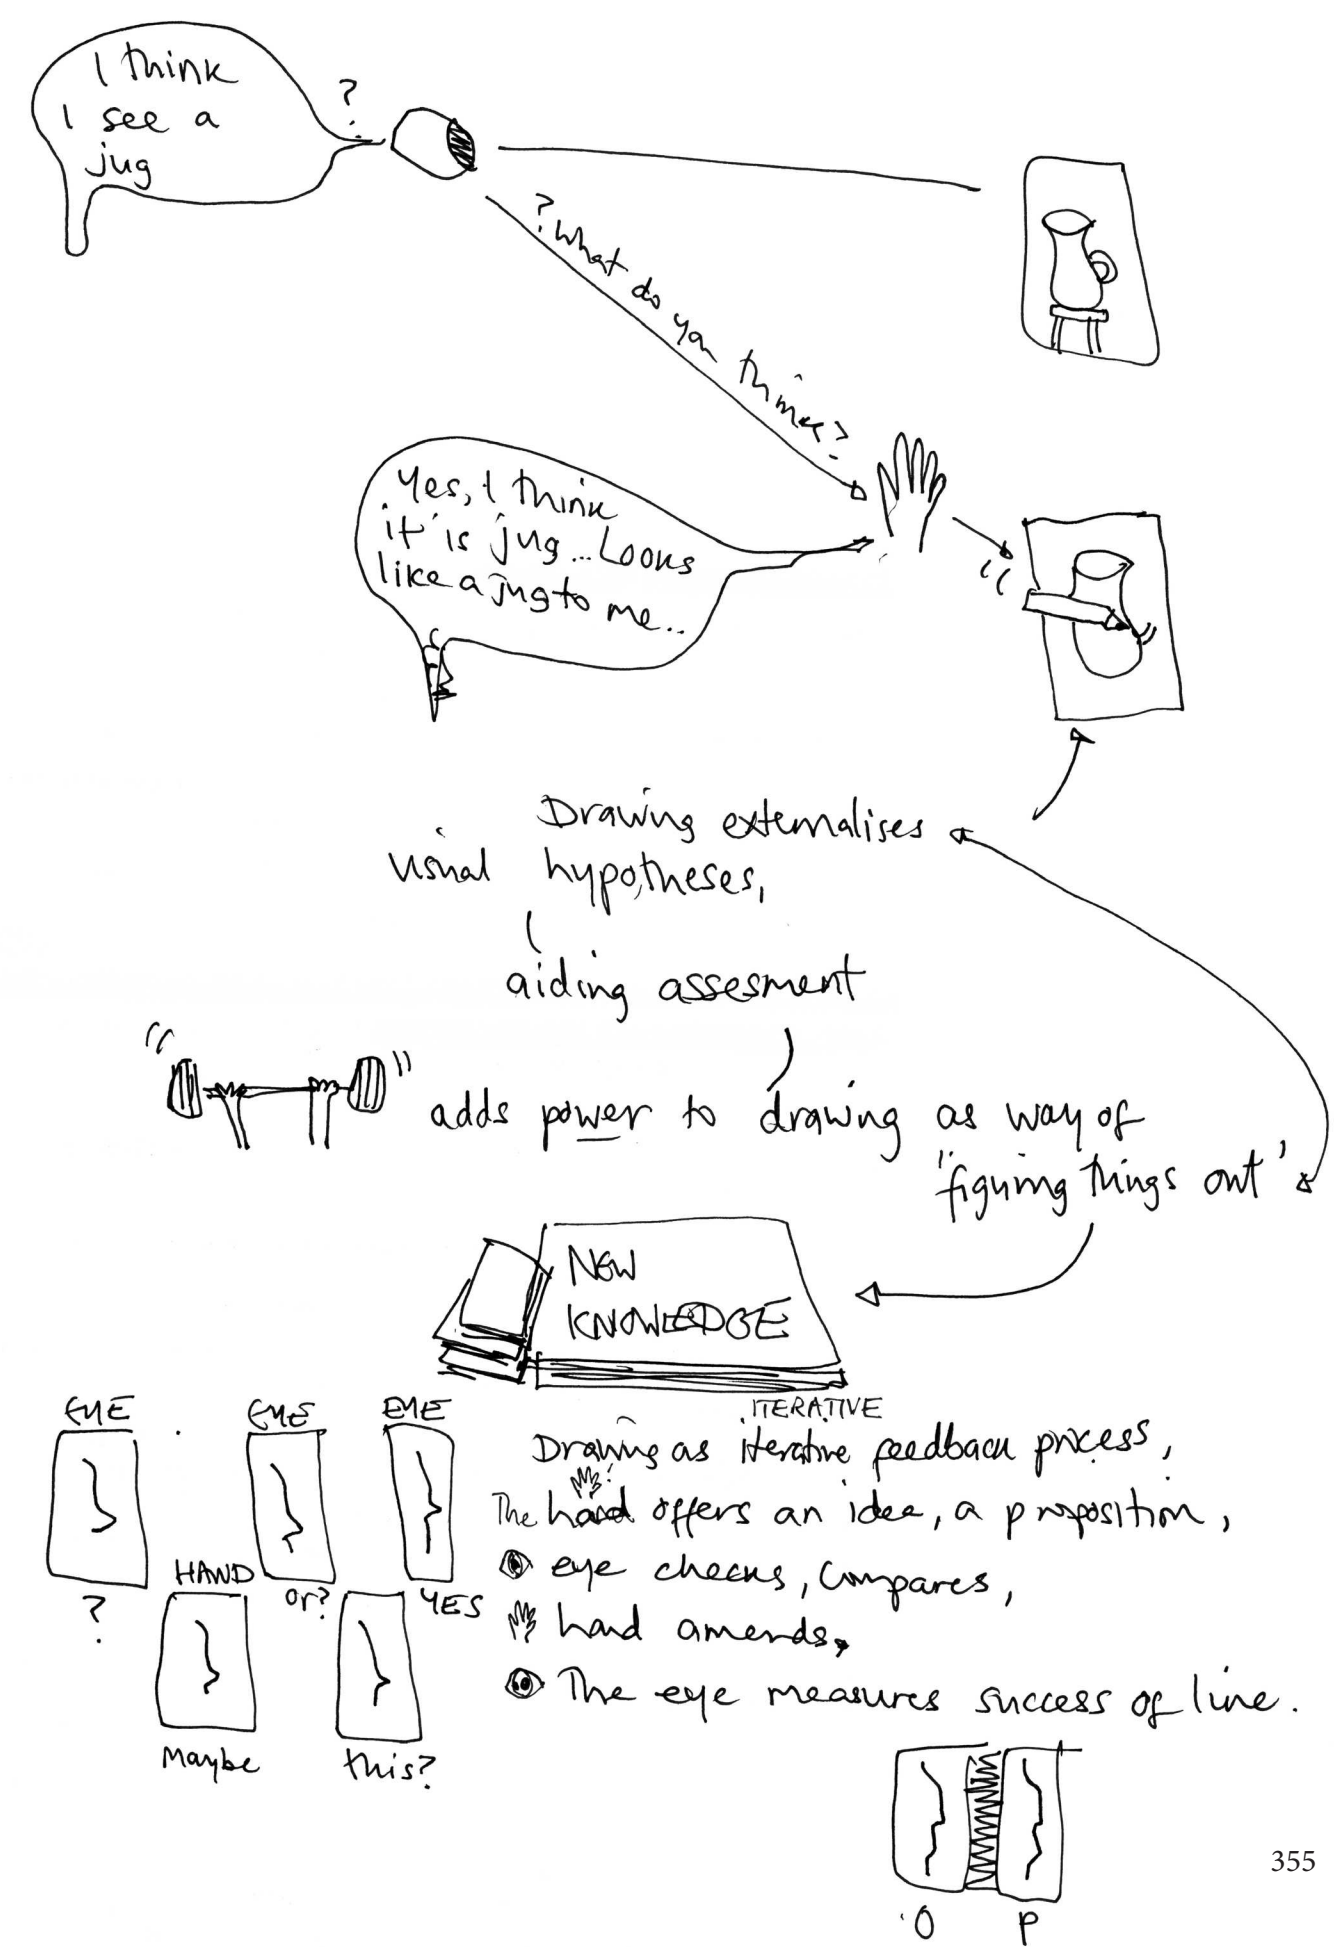 I think
I see a
jug
?
? What do you think?
Yes, I think
it is jug... Looks
like a jug to me...
Drawing externalises
visual hypotheses,
aiding assesment
adds power to drawing as way of
"figuring things out"
NEW
KNOWLEDGE
ITERATIVE
Drawing as iterative feedback process,
The hand offers an idea, a proposition,
eye checks, compares,
hand amends,
The eye measures success of line.
EYE
EYE
EYE
?
HAND
or?
YES
Maybe
this?
O
P
355